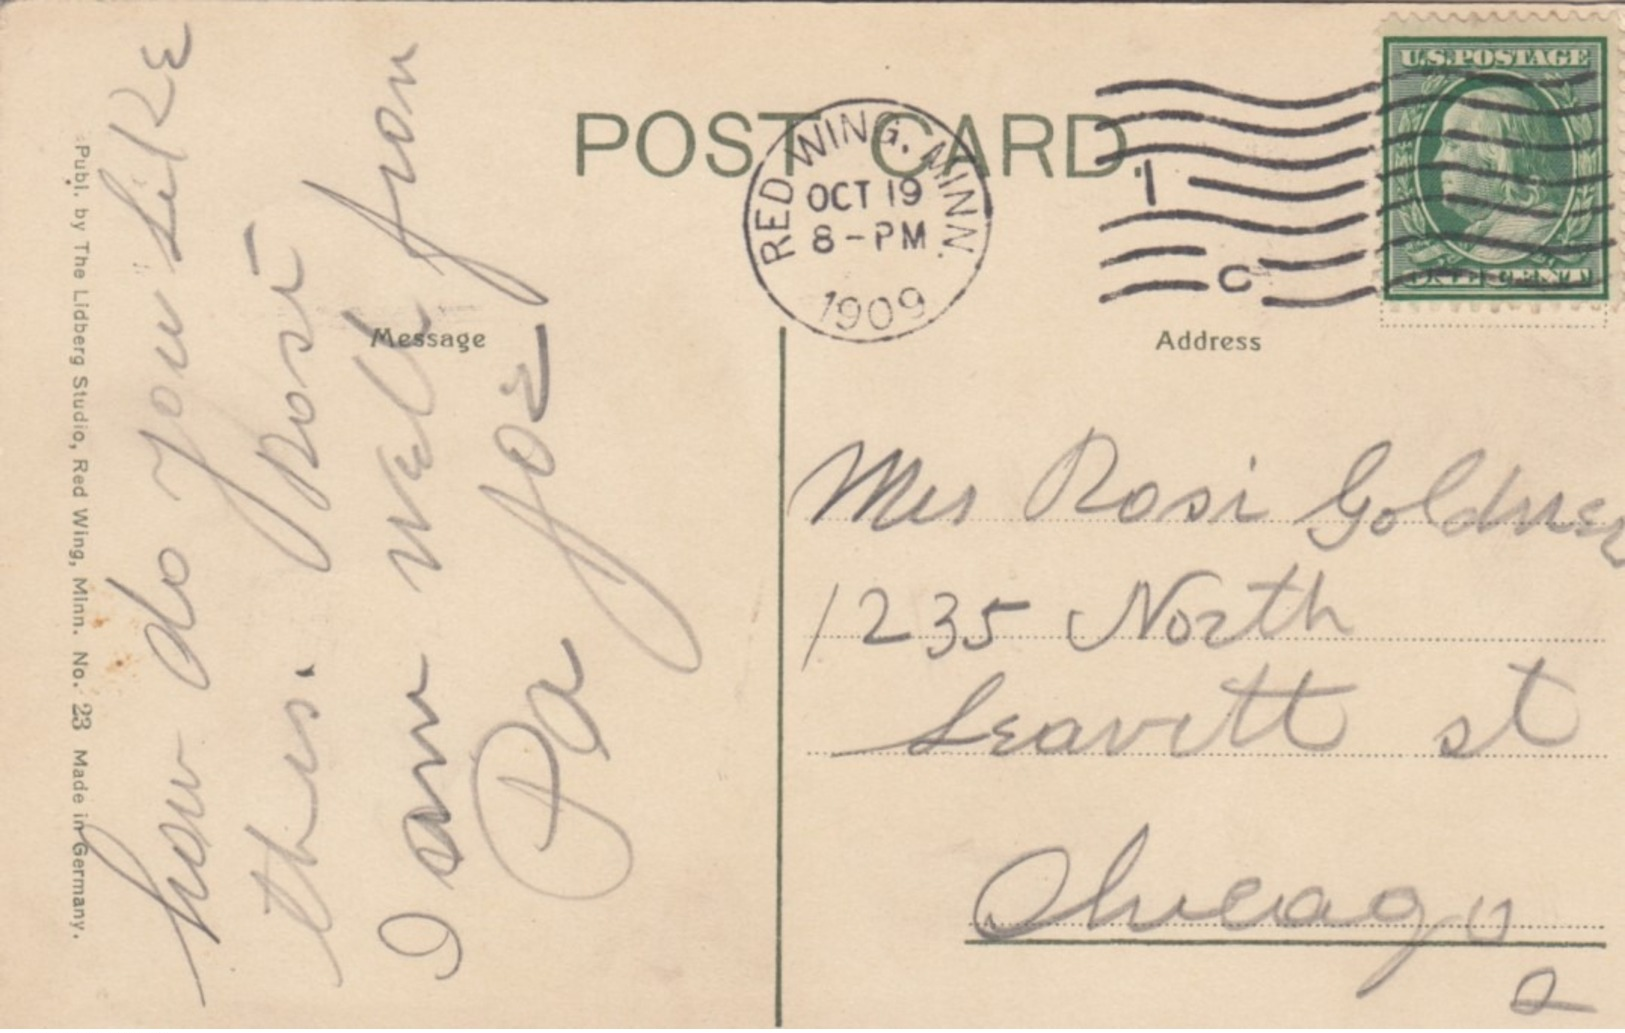 POST CARD.
RED WING, MINN.
OCT 19
8-PM
1909
1
C
U.S. POSTAGE
ONE CENT
Message
Address
how do you Like
this. Post
I am well from
Pa Joe
Mrs Rosi Goldner
1235 North
Leavitt st
Chicago
Publ. by The Lidberg Studio, Red Wing, Minn. No. 23 Made in Germany.